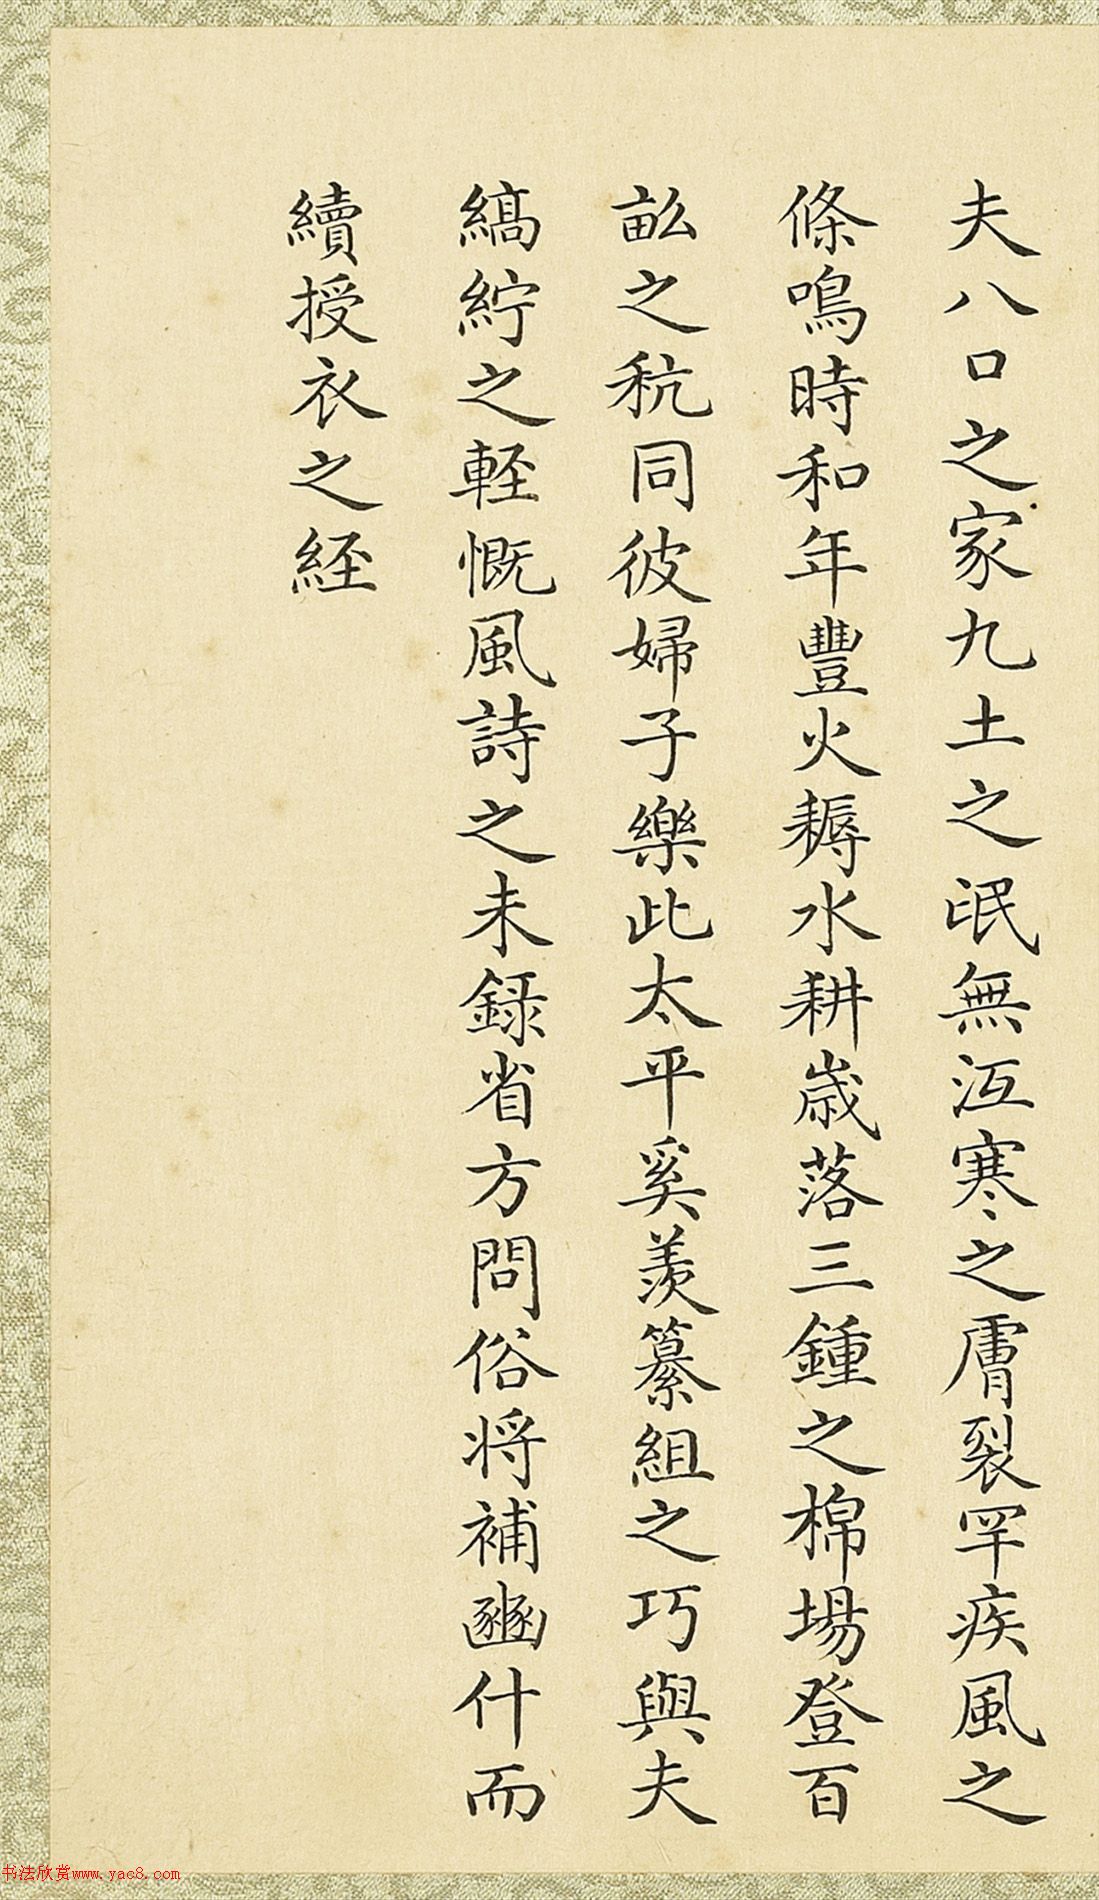 夫八口之家九土之氓無沍寒之膚裂罕疾風之
條鳴時和年豐火耨水耕歲落三鍾之棉場登百
畝之秔同彼婦子樂此太平奚羨纂組之巧與夫
縞紵之軽慨風詩之未録省方問俗将補豳什而
續授衣之経
书法欣赏www.yac8.com